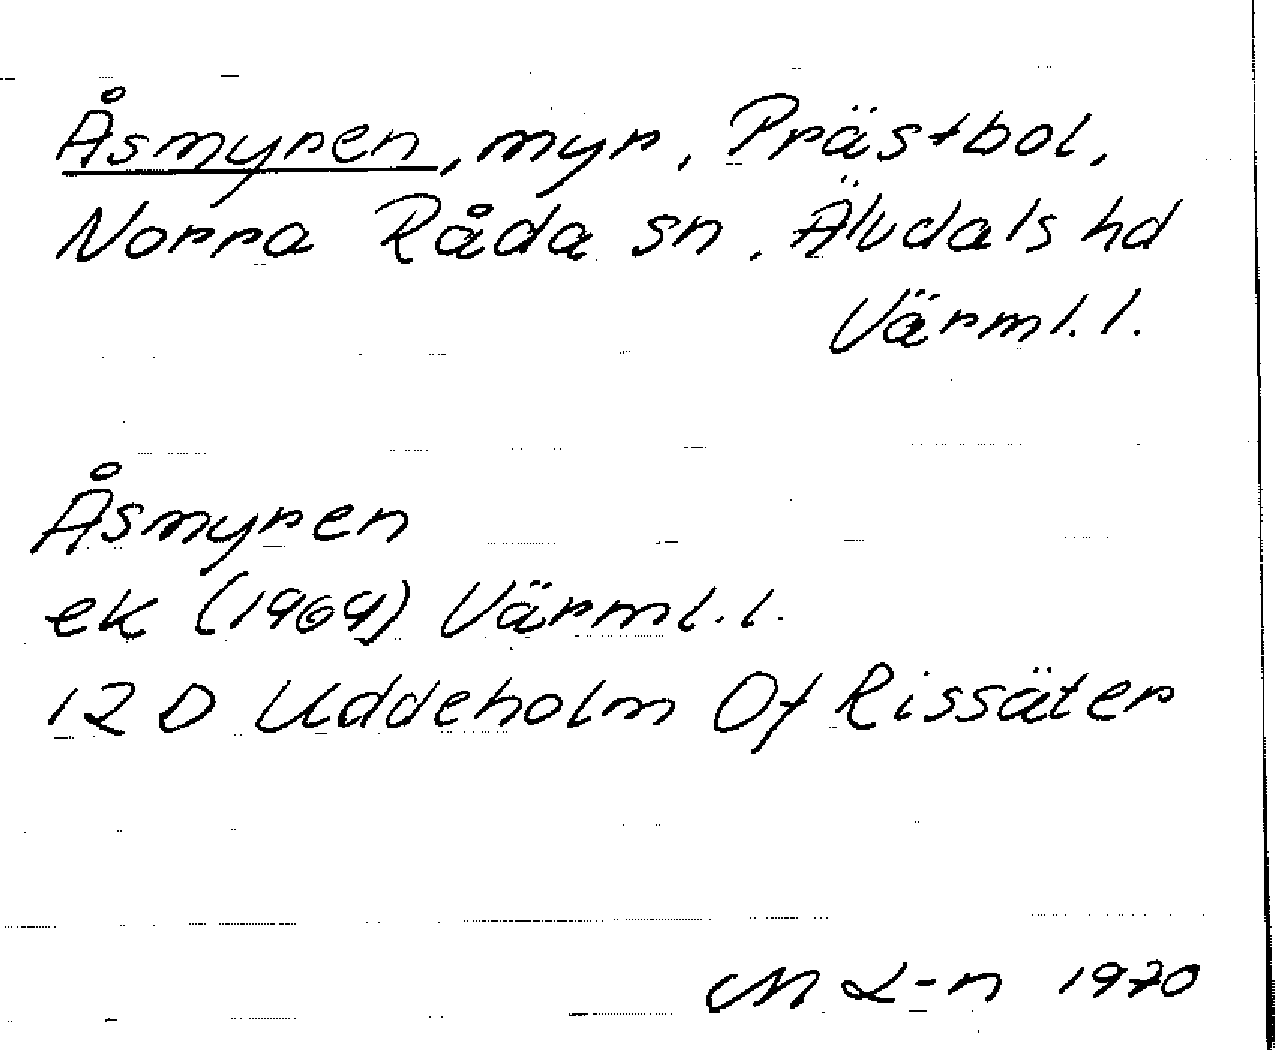 Åsmyren, myr, Prästbol,
Norra Råda sn, Älvdals hd
Värml. l.
Åsmyren
ek (1969) Värml. l.
12 D Uddeholm 0f Rissäter
M L-n 1970